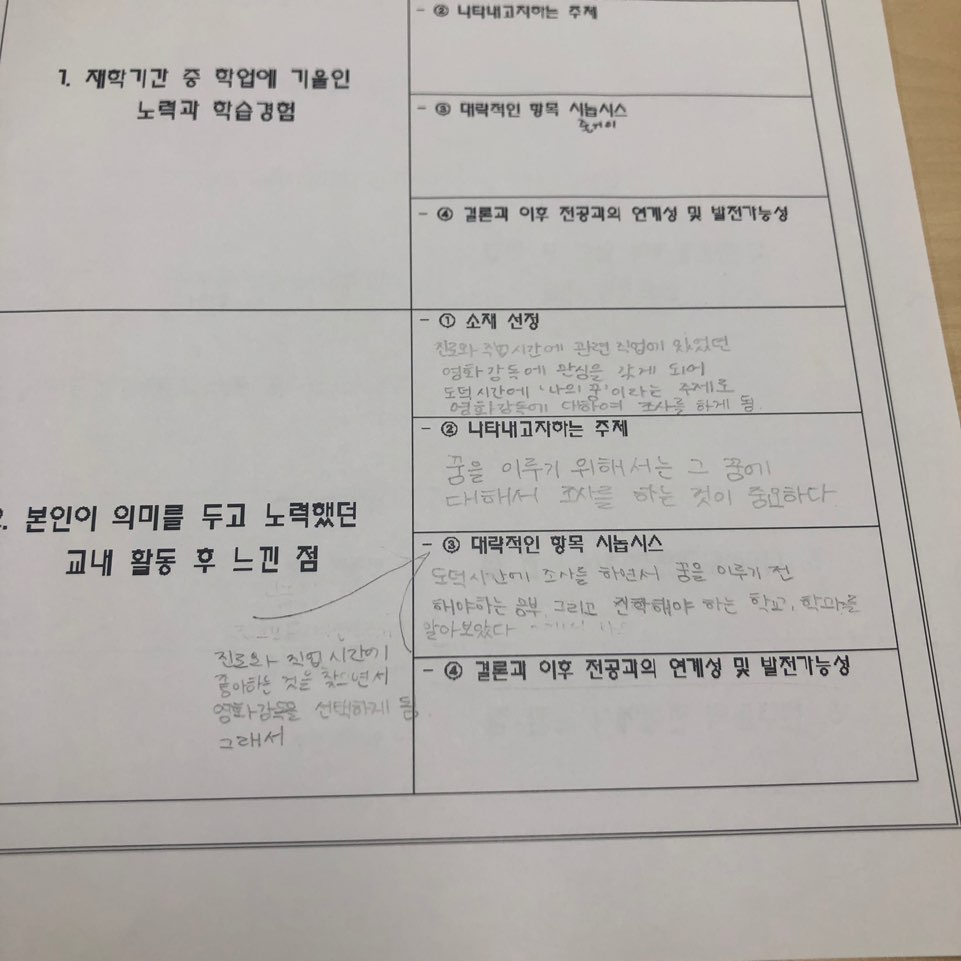 - ② 나타내고자하는 주제
1. 재학기간 중 학업에 기울인
노력과 학습경험
- ③ 대략적인 항목 시놉시스
줄거리
- ④ 결론과 이후 전공과의 연계성 및 발전가능성
- ① 소재 선정
진로와 직업시간에 관련 직업에 있었던
영화감독에 관심을 갖게 되어
도덕시간에 '나의 꿈'이라는 주제로
영화감독에 대하여 조사를 하게 됨.
- ② 나타내고자하는 주제
꿈을 이루기 위해서는 그 꿈에
대해서 조사를 하는 것이 중요하다
2. 본인이 의미를 두고 노력했던
교내 활동 후 느낀 점
- ③ 대략적인 항목 시놉시스
도덕시간에 조사를 하면서 꿈을 이루기 전
해야하는 공부, 그리고 진학해야 하는 학교, 학과를
알아보았다
진로와 직업시간에
좋아하는 것을 찾으면서
영화감독을 선택하게 됨.
그래서
- ④ 결론과 이후 전공과의 연계성 및 발전가능성